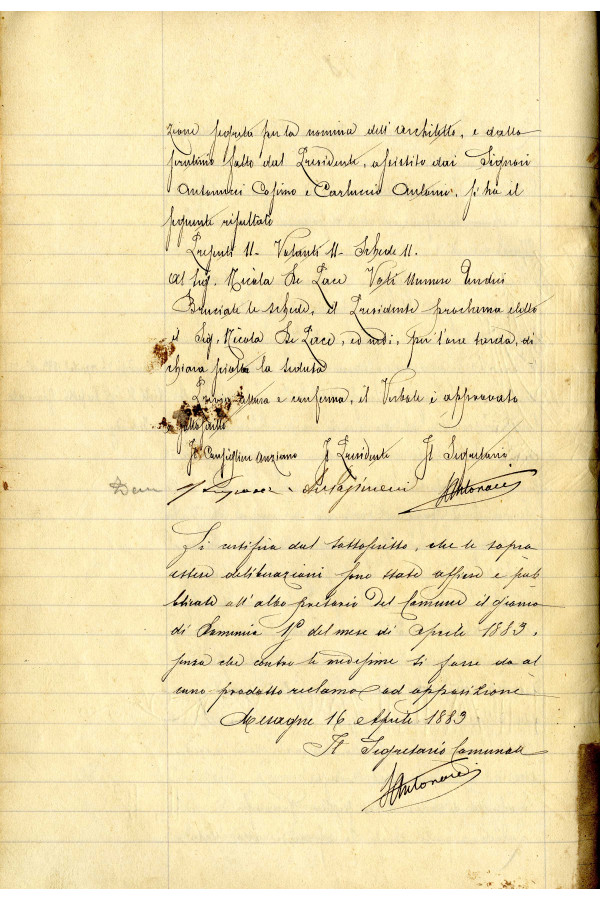 zione segreta per la nomina dell'architetto, e dallo
scrutinio fatto dal Presidente, assistito dai Signori
Antonucci Cosimo e Carluccio Antonio, si ha il
seguente risultato
Presenti 11 - Votanti 11 - Schede 11.
Al Sig. Nicola De Pace Voti numero Undici
Bruciate le schede, il Presidente proclama eletto
il Sig. Nicola De Pace, ed indi, per l'ora tarda, di
chiara sciolta la seduta
Previa lettura e conferma, il Verbale è approvato
e sottoscritto
Il Consigliere anziano Il Presidente Il Segretario
Antonaci
Si certifica dal sottoscritto, che le sopra
estese deliberazioni sono state affisse e pub
blicate all'albo pretorio del Comune il giorno
di Domenica 1º del mese di Aprile 1883,
senza che contro le medesime si fosse da al
cuno prodotto reclamo ad opposizione
Mesagne 16 Aprile 1883
Il Segretario Comunale
Antonaci